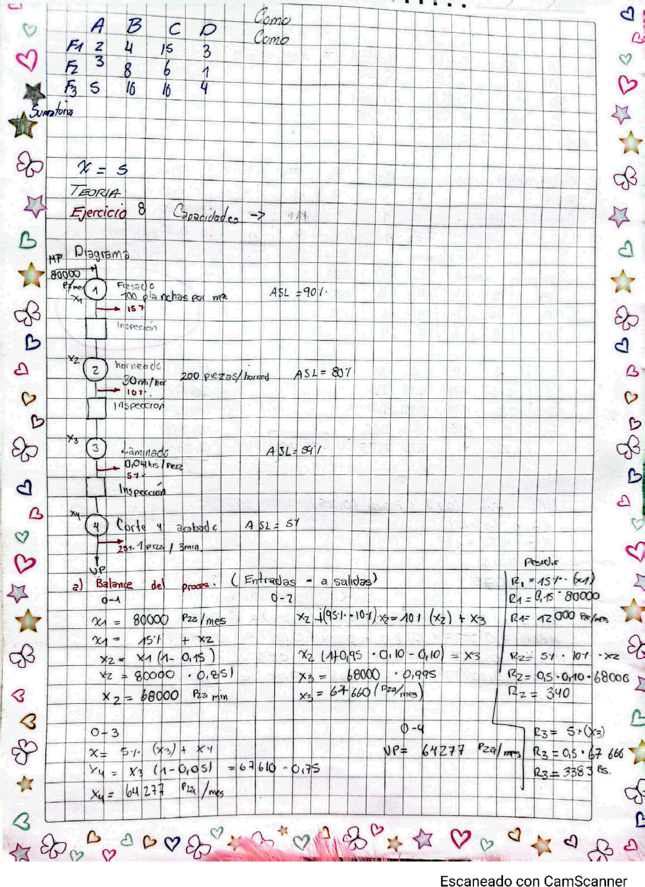 A B C D
Como
Como
F1 2 4 15 3
F2 3 8 6 1
F3 5 16 16 4
Sumatoria
x = 5
TEORIA
Ejercicio 8 Capacidades ->
Diagrama
MP
80000
x1
1
Fresado
100 planchas por
ASL = 90%
15%
Inspección
x2
2
horneado
200 piezas/horned
ASL = 80%
10%
Inspección
x3
3
Laminado
0,04 hrs/
5%
Inspección
x4
4
Corte y acabado
ASL = 5%
25% 1 pza / 3min
VP
a) Balance del proceso. (Entradas = a salidas)
0-1
x1 = 80000 Pza/mes
x1 = 15% + x2
x2 = x1 (1 - 0,15)
x2 = 80000 · 0,851
x2 = 68000 Pza min
0-2
x2 +(95% · 10%) x2 = 10% (x2) + x3
x2 (1+0,95 · 0,10 - 0,10) = x3
x3 = 68000 · 0,995
x3 = 67660 (Pza/mes)
R1 = 15% · (x1)
R1 = 0,15 · 80000
R1 = 12000
R2 = 5% · 10% · x2
R2 = 0,5 · 0,10 · 68000
R2 = 340
0-3
x = 5% (x3) + x4
x4 = x3 (1-0,05) = 67610 - 0,75
x4 = 64277 Pza/mes
0-4
VP = 64277 Pza/mes
R3 = 5% (x3)
R3 = 0,5 · 67 666
R3 = 3383 Ps.
Escaneado con CamScanner